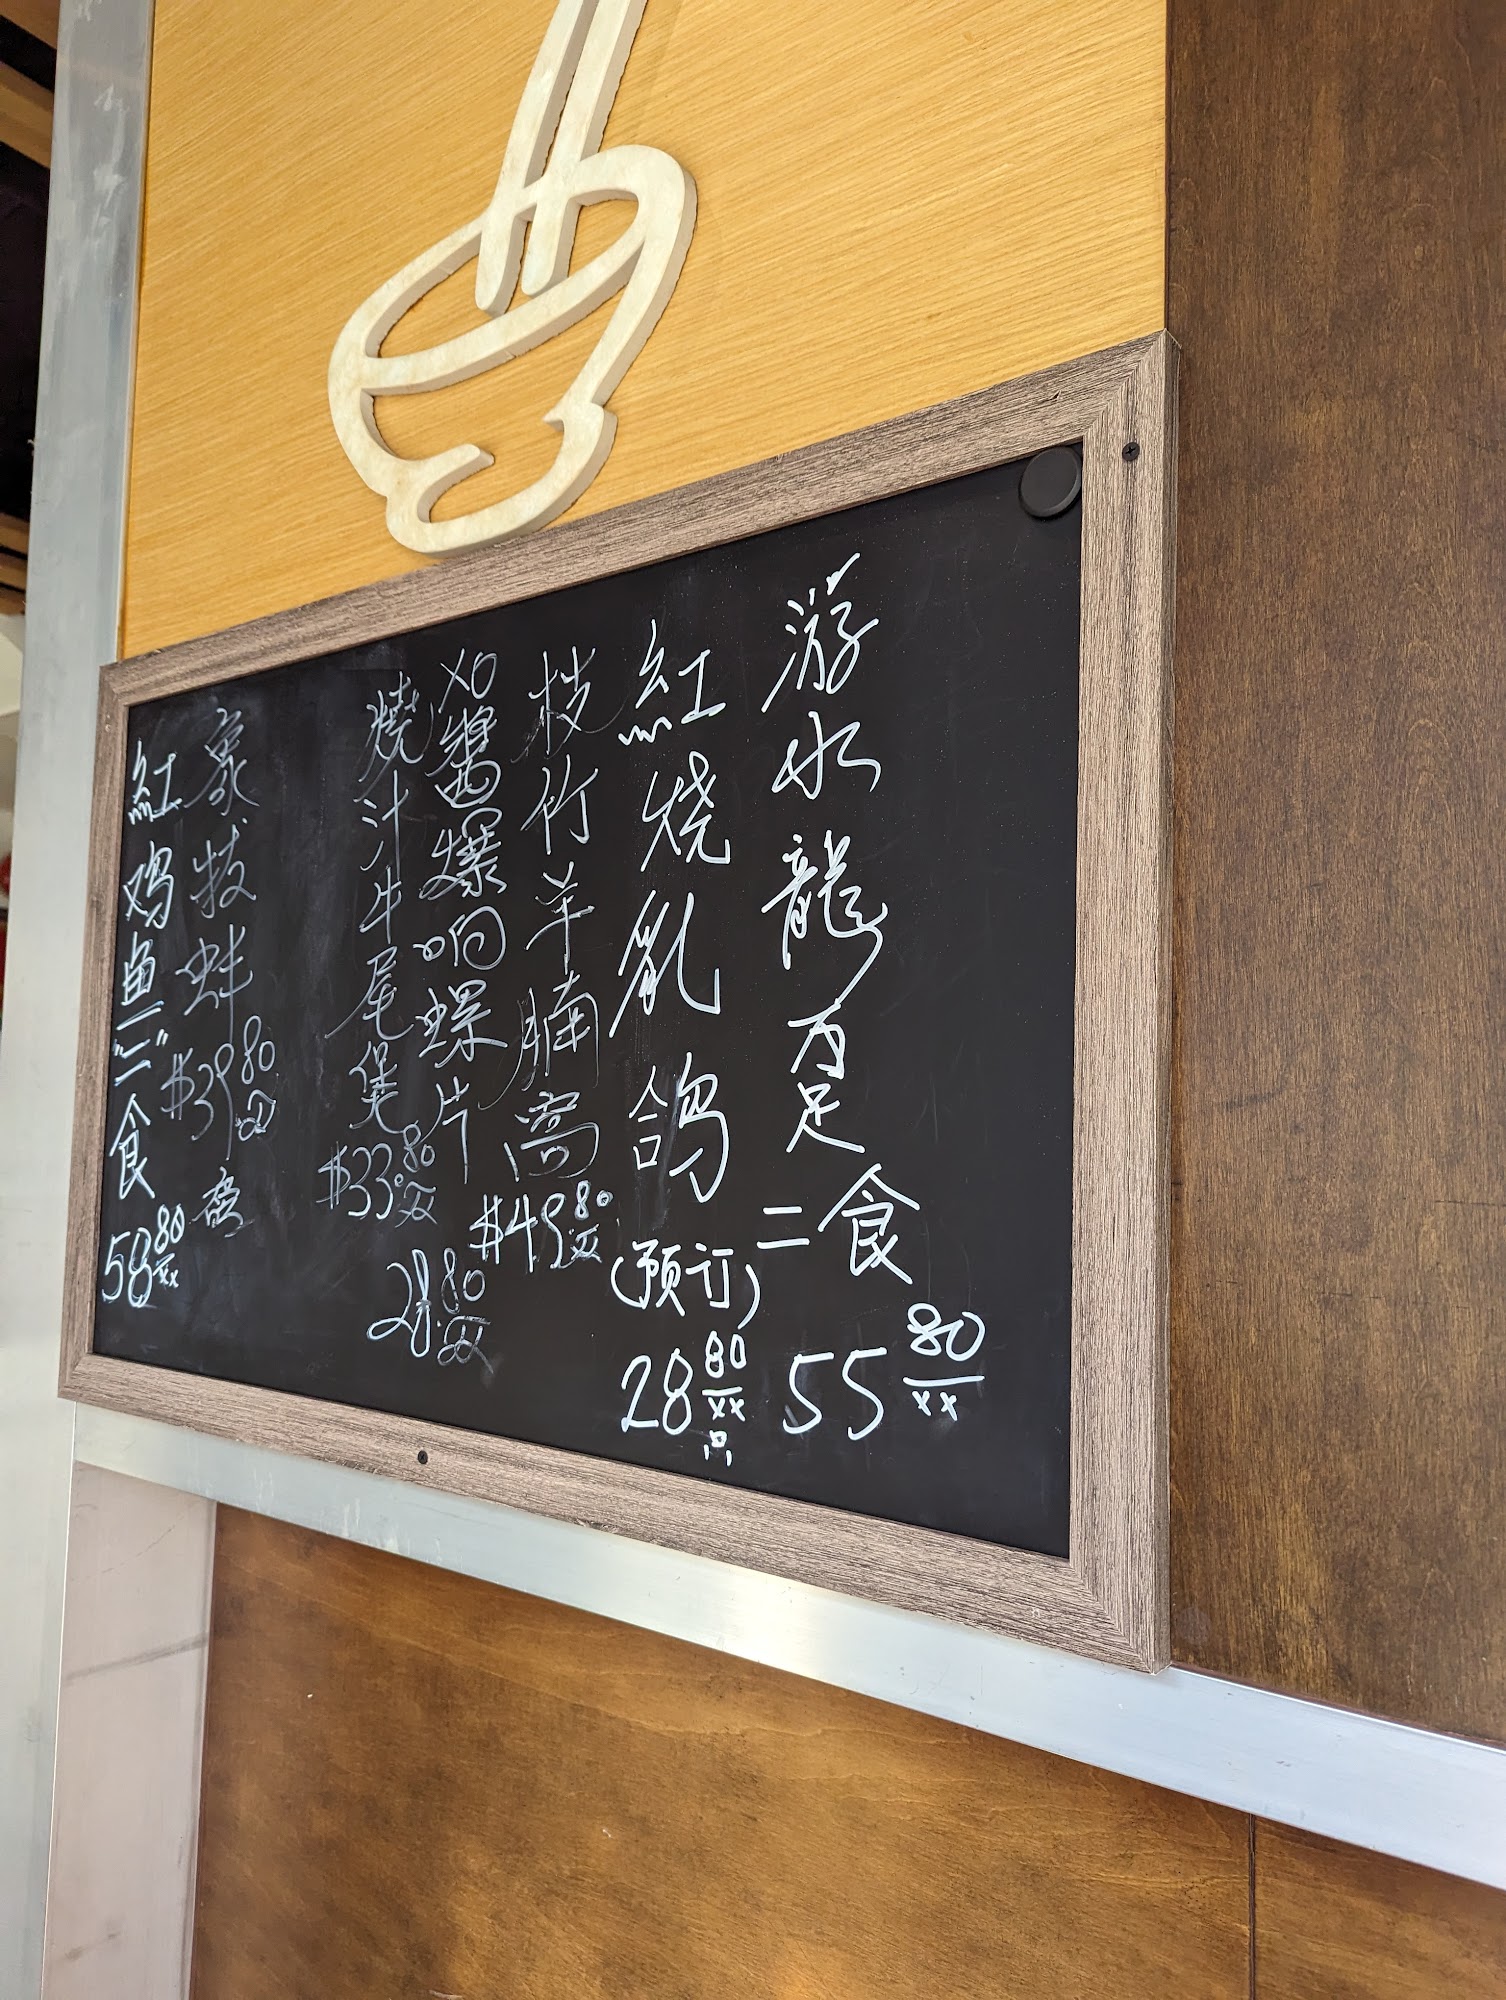 游水龍利足二食 55 80/xx
紅燒乳鸽(预订) 28 80/xx 只
枝竹羊腩窝 $49 80/xx
XO醬爆响螺片 28 80/xx
燒汁牛尾煲 $33.80/xx
象拔蚌 $39 80/磅
紅鸡鱼"三"食 58 80/xx